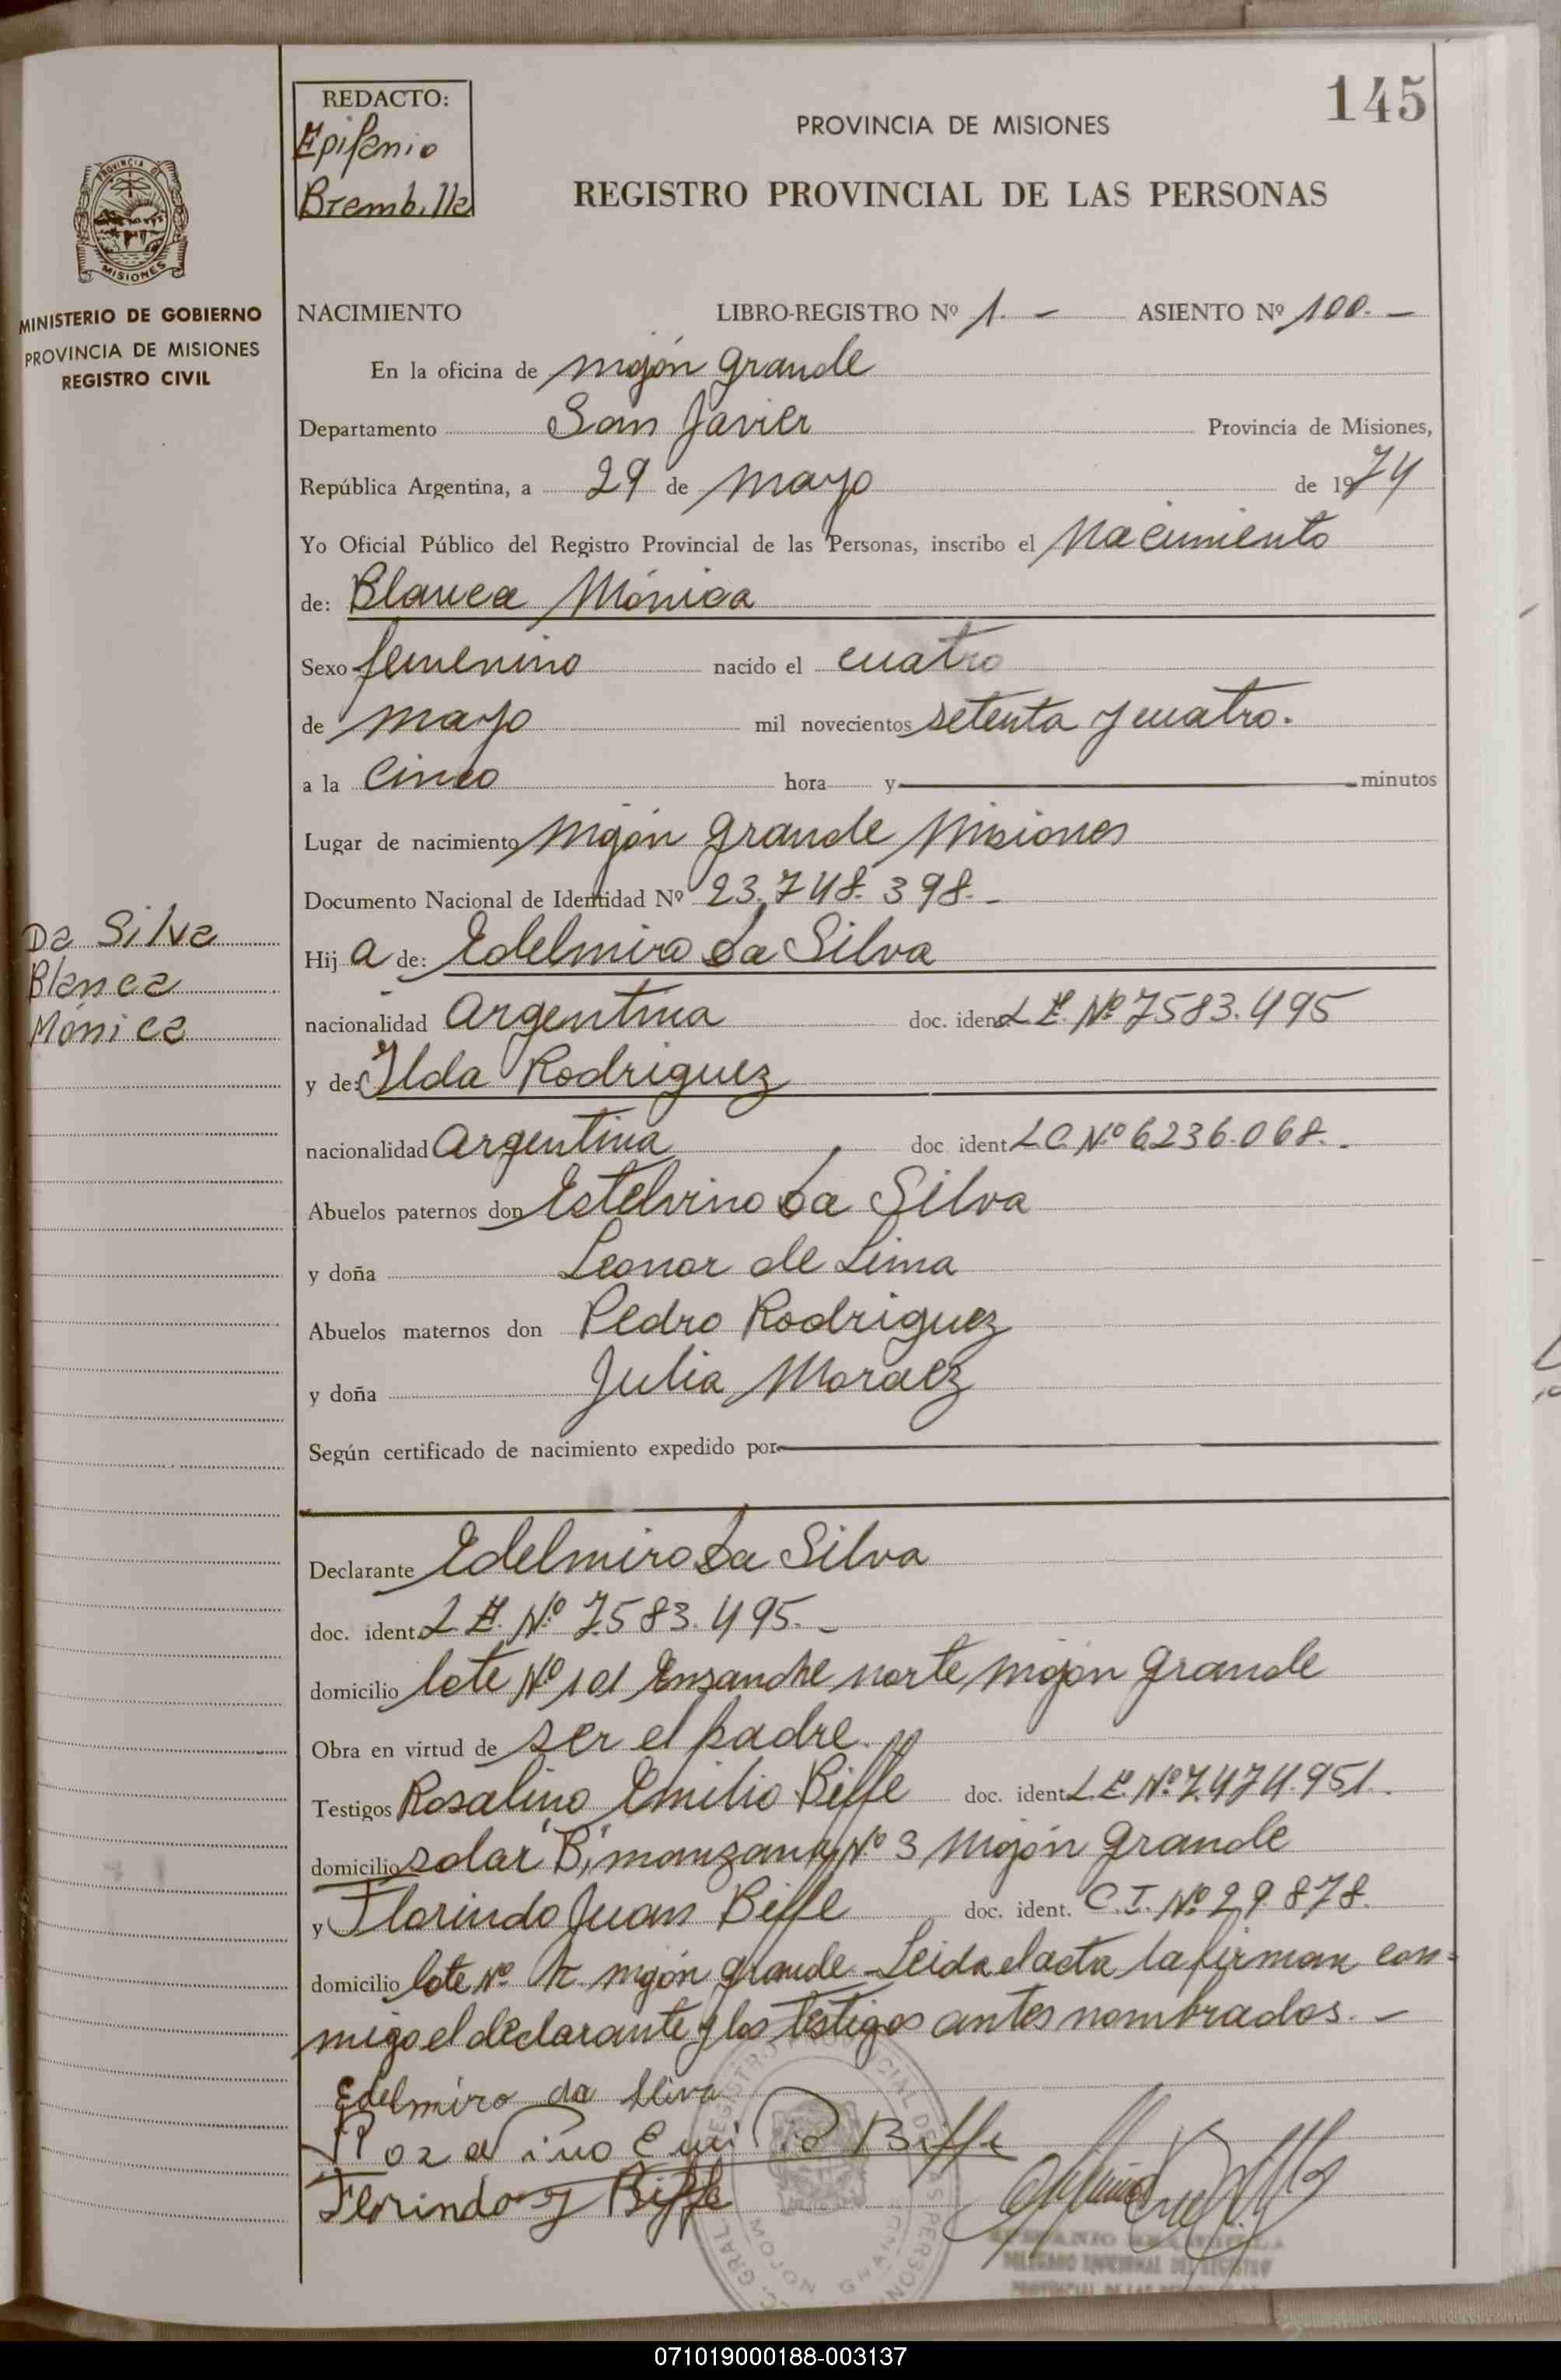 145
REDACTO:
Epifanio
Brembilla
PROVINCIA DE MISIONES
REGISTRO PROVINCIAL DE LAS PERSONAS
PROVINCIA DE
MISIONES
MINISTERIO DE GOBIERNO
PROVINCIA DE MISIONES
REGISTRO CIVIL
NACIMIENTO LIBRO-REGISTRO Nº 1.- ASIENTO Nº 100.-
En la oficina de Mojón Grande
Departamento San Javier Provincia de Misiones,
República Argentina, a 29 de Mayo de 1974
Yo Oficial Público del Registro Provincial de las Personas, inscribo el Nacimiento
de: Blanca Mónica
Sexo femenino nacido el cuatro
de Mayo mil novecientos setenta y cuatro.
a la cinco hora y minutos
Lugar de nacimiento Mojón Grande Misiones
Documento Nacional de Identidad Nº 23.748.398.-
Da Silva
Blanca
Mónica
Hij a de: Edelmiro Da Silva
nacionalidad Argentina doc. ident. L.E. Nº 7583.495
y de: Ilda Rodriguez
nacionalidad Argentina doc. ident. L.C. Nº 6236.068.-
Abuelos paternos don Estelvino Da Silva
y doña Leonor de Lima
Abuelos maternos don Pedro Rodriguez
y doña Julia Moraez
Según certificado de nacimiento expedido por
Declarante Edelmiro Da Silva
doc. ident. L.E. Nº 7.583.495.-
domicilio lote Nº 101 Ensanche norte Mojón Grande
Obra en virtud de ser el padre.
Testigos Rosalino Emilio Biffe doc. ident. L.E. Nº 7.474.951.
domicilio solar "B", manzana Nº 3 Mojón Grande
y Florindo Juan Biffe doc. ident. C.I. Nº 29.878.
domicilio lote Nº Mojón Grande - Leida el acta la firman con-
migo el declarante y los testigos antes nombrados.-
Edelmiro da Silva
Rozalino Emilio Biffe
Florindo J Biffe
REGISTRO PROVINCIAL DE LAS PERSONAS
MOJON GRANDE
EPIFANIO BREMBILLA
DELEGADO SECCIONAL DEL REGISTRO
PROVINCIAL DE LAS PERSONAS
071019000188-003137